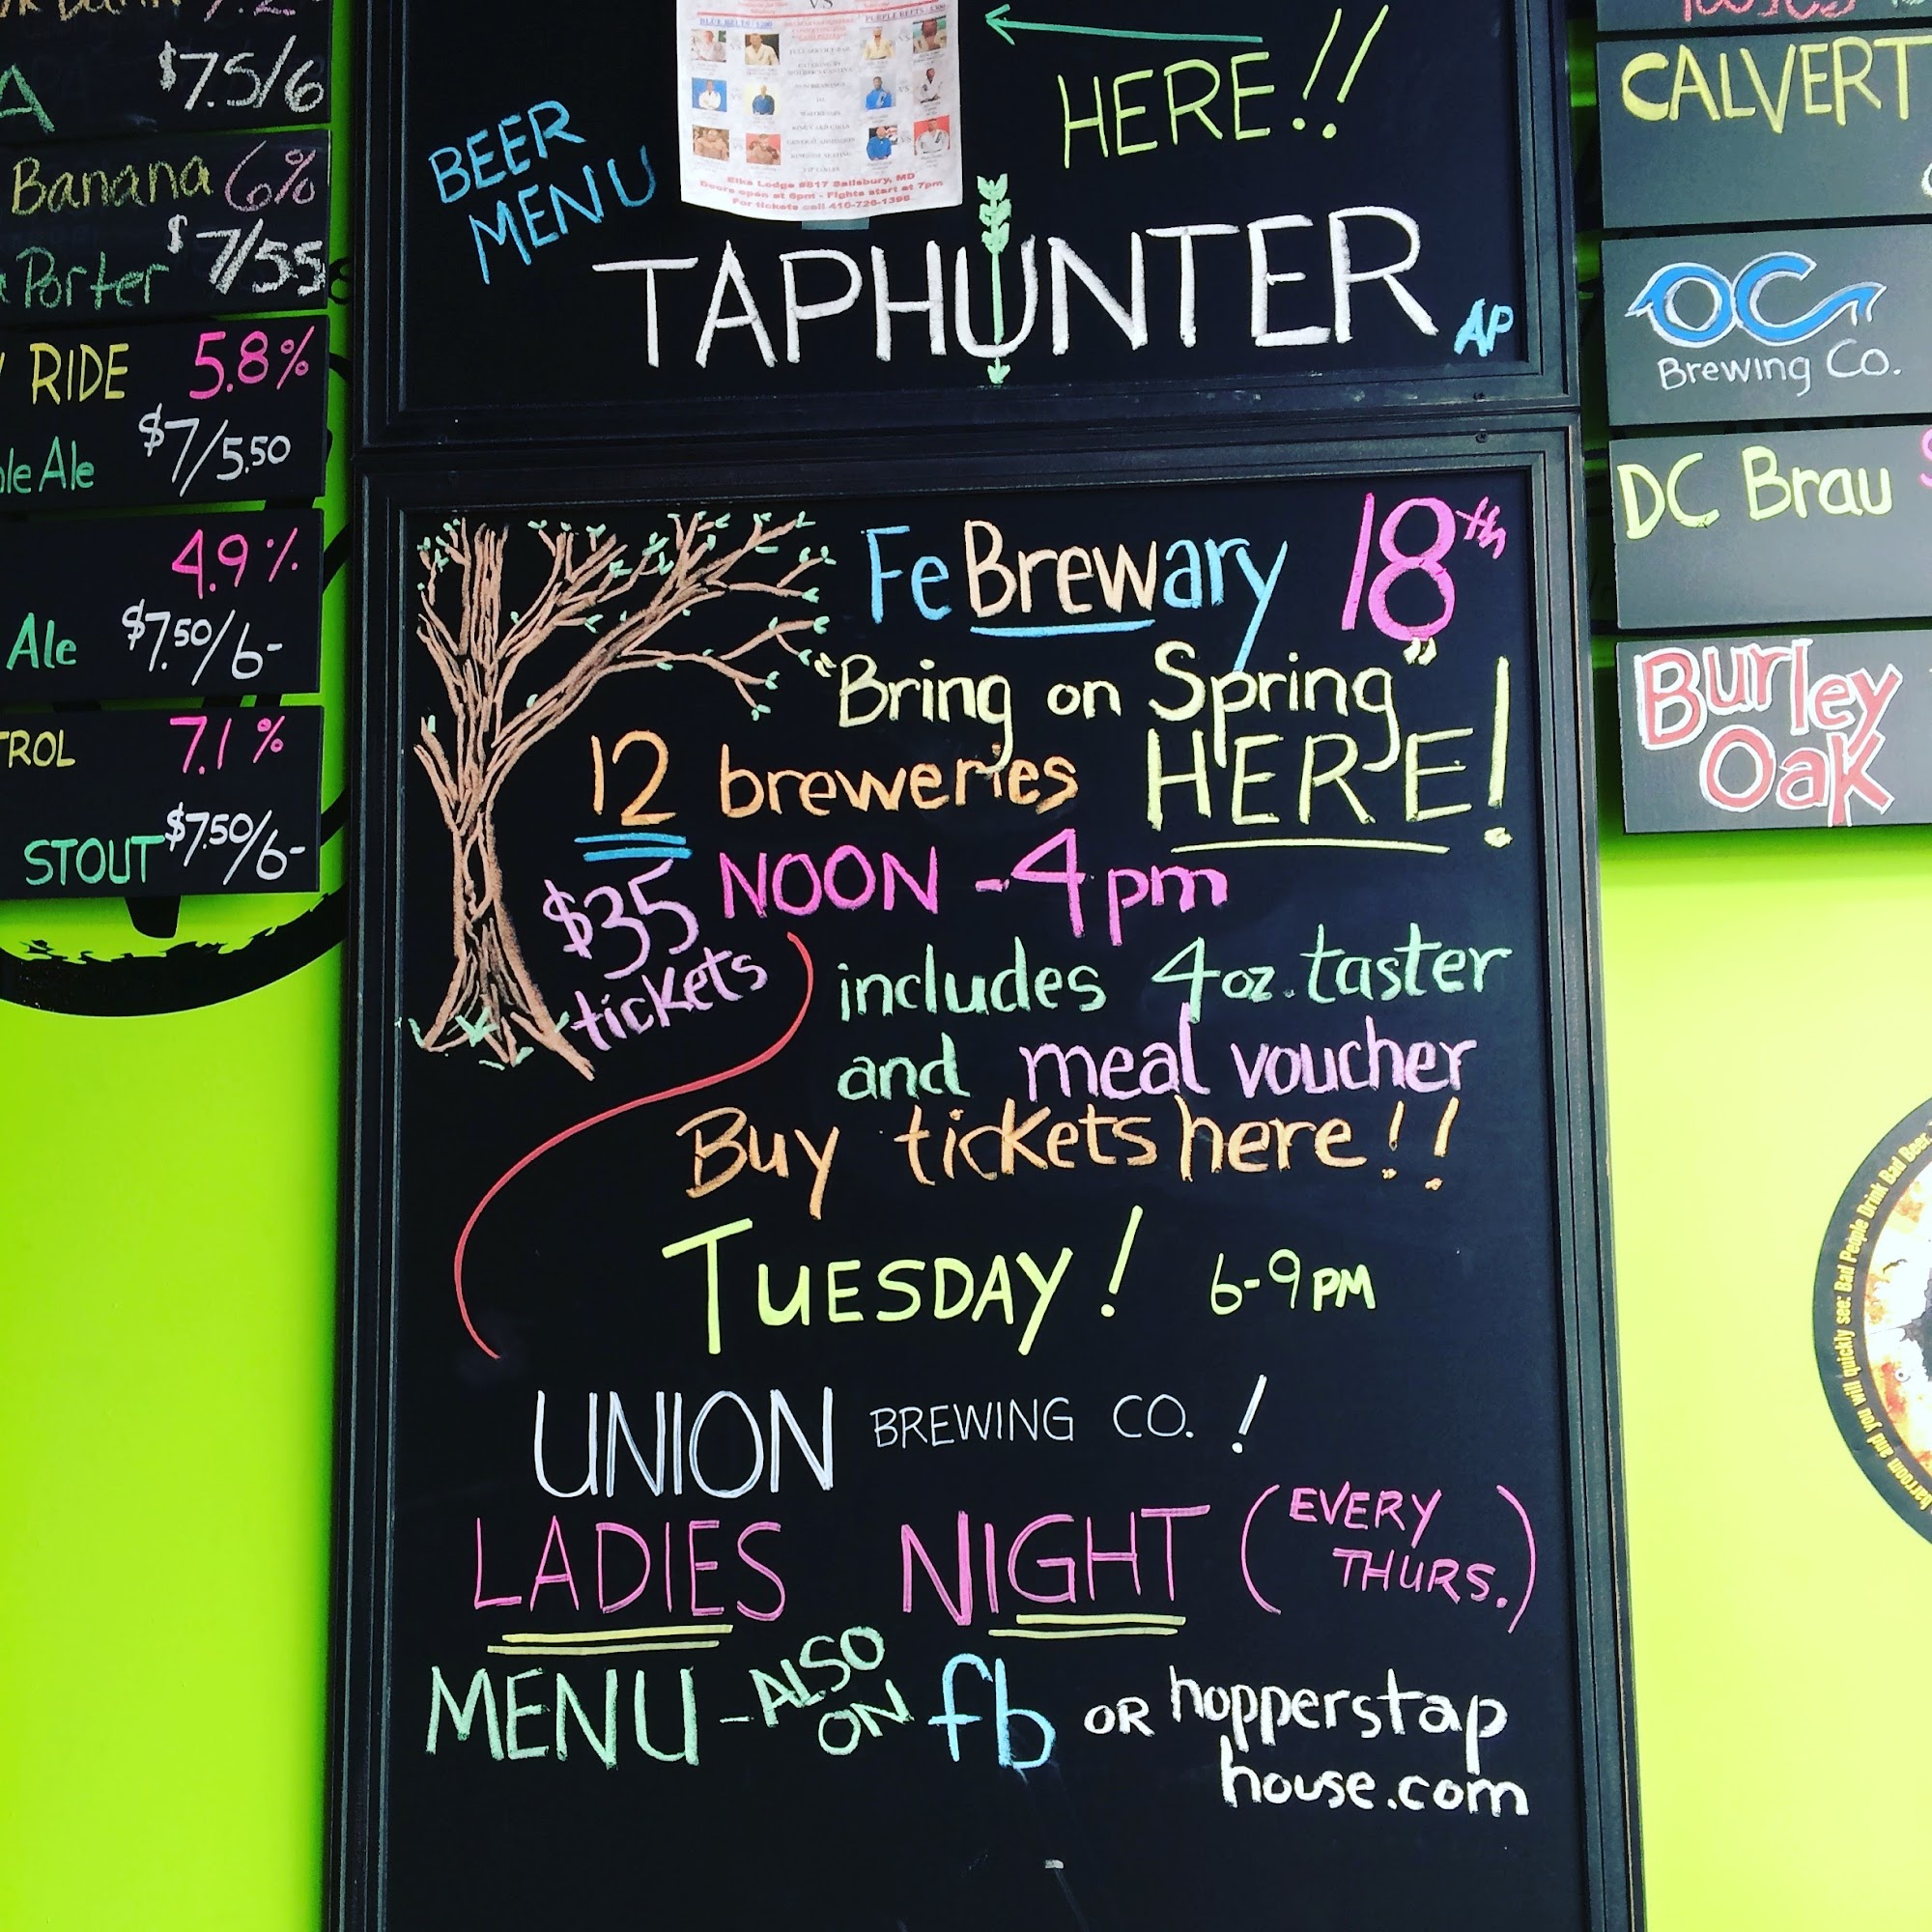 $7.5/6
Banana 6%
Porter $7/5.5
RIDE 5.8%
Ale $7/5.50
4.9%
Ale $7.50/6-
7.1%
STOUT $7.50/6-
VS
BLUE BELTS
PURPLE BELTS
Elks Lodge #817 Salisbury, MD
Doors open at 6pm - Fights start at 7pm
For tickets call 410-726-1398
HERE!!
BEER
MENU
TAPHUNTER
AP
FeBrewary 18th
"Bring on Spring"
12 breweries HERE!
$35 NOON - 4pm
tickets
includes 4oz. taster
and meal voucher
Buy tickets here!!
TUESDAY! 6-9PM
UNION BREWING CO. !
LADIES NIGHT (EVERY
THURS.)
MENU - ALSO
ON fb OR hopperstap
house.com
CALVERT
OC
Brewing Co.
DC Brau
Burley
Oak
and you will quickly see: Bad People Drink Bad Beer.